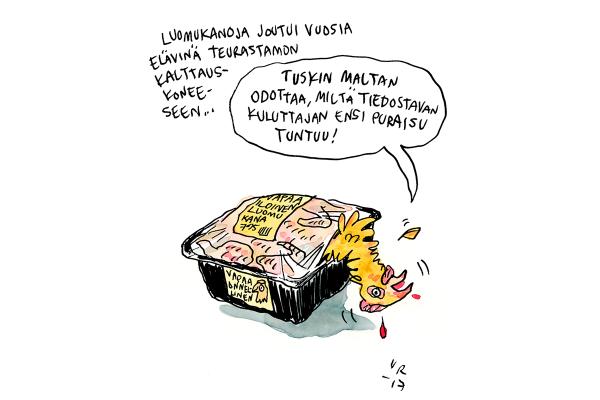 LUOMUKANOJA JOUTUI VUOSIA
ELÄVINÄ TEURASTAMON
KALTTAUS-
KONEE-
SEEN...
TUSKIN MALTAN
ODOTTAA, MILTÄ TIEDOSTAVAN
KULUTTAJAN ENSI PURAISU
TUNTUU!
VAPAA
ILOINEN
LUOMU
KANA
VAPAA
ONNEL-
LINEN
VR
-17